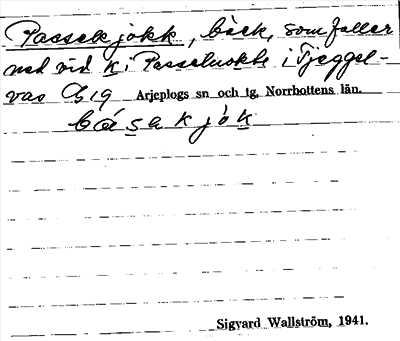 Passekjåkk, bäck, som faller
ned vid k i Passeluokte i Tjeggel-
vas G 19 Arjeplogs sn och tg. Norrbottens län.
bás e k jå k
Sigvard Wallström, 1941.